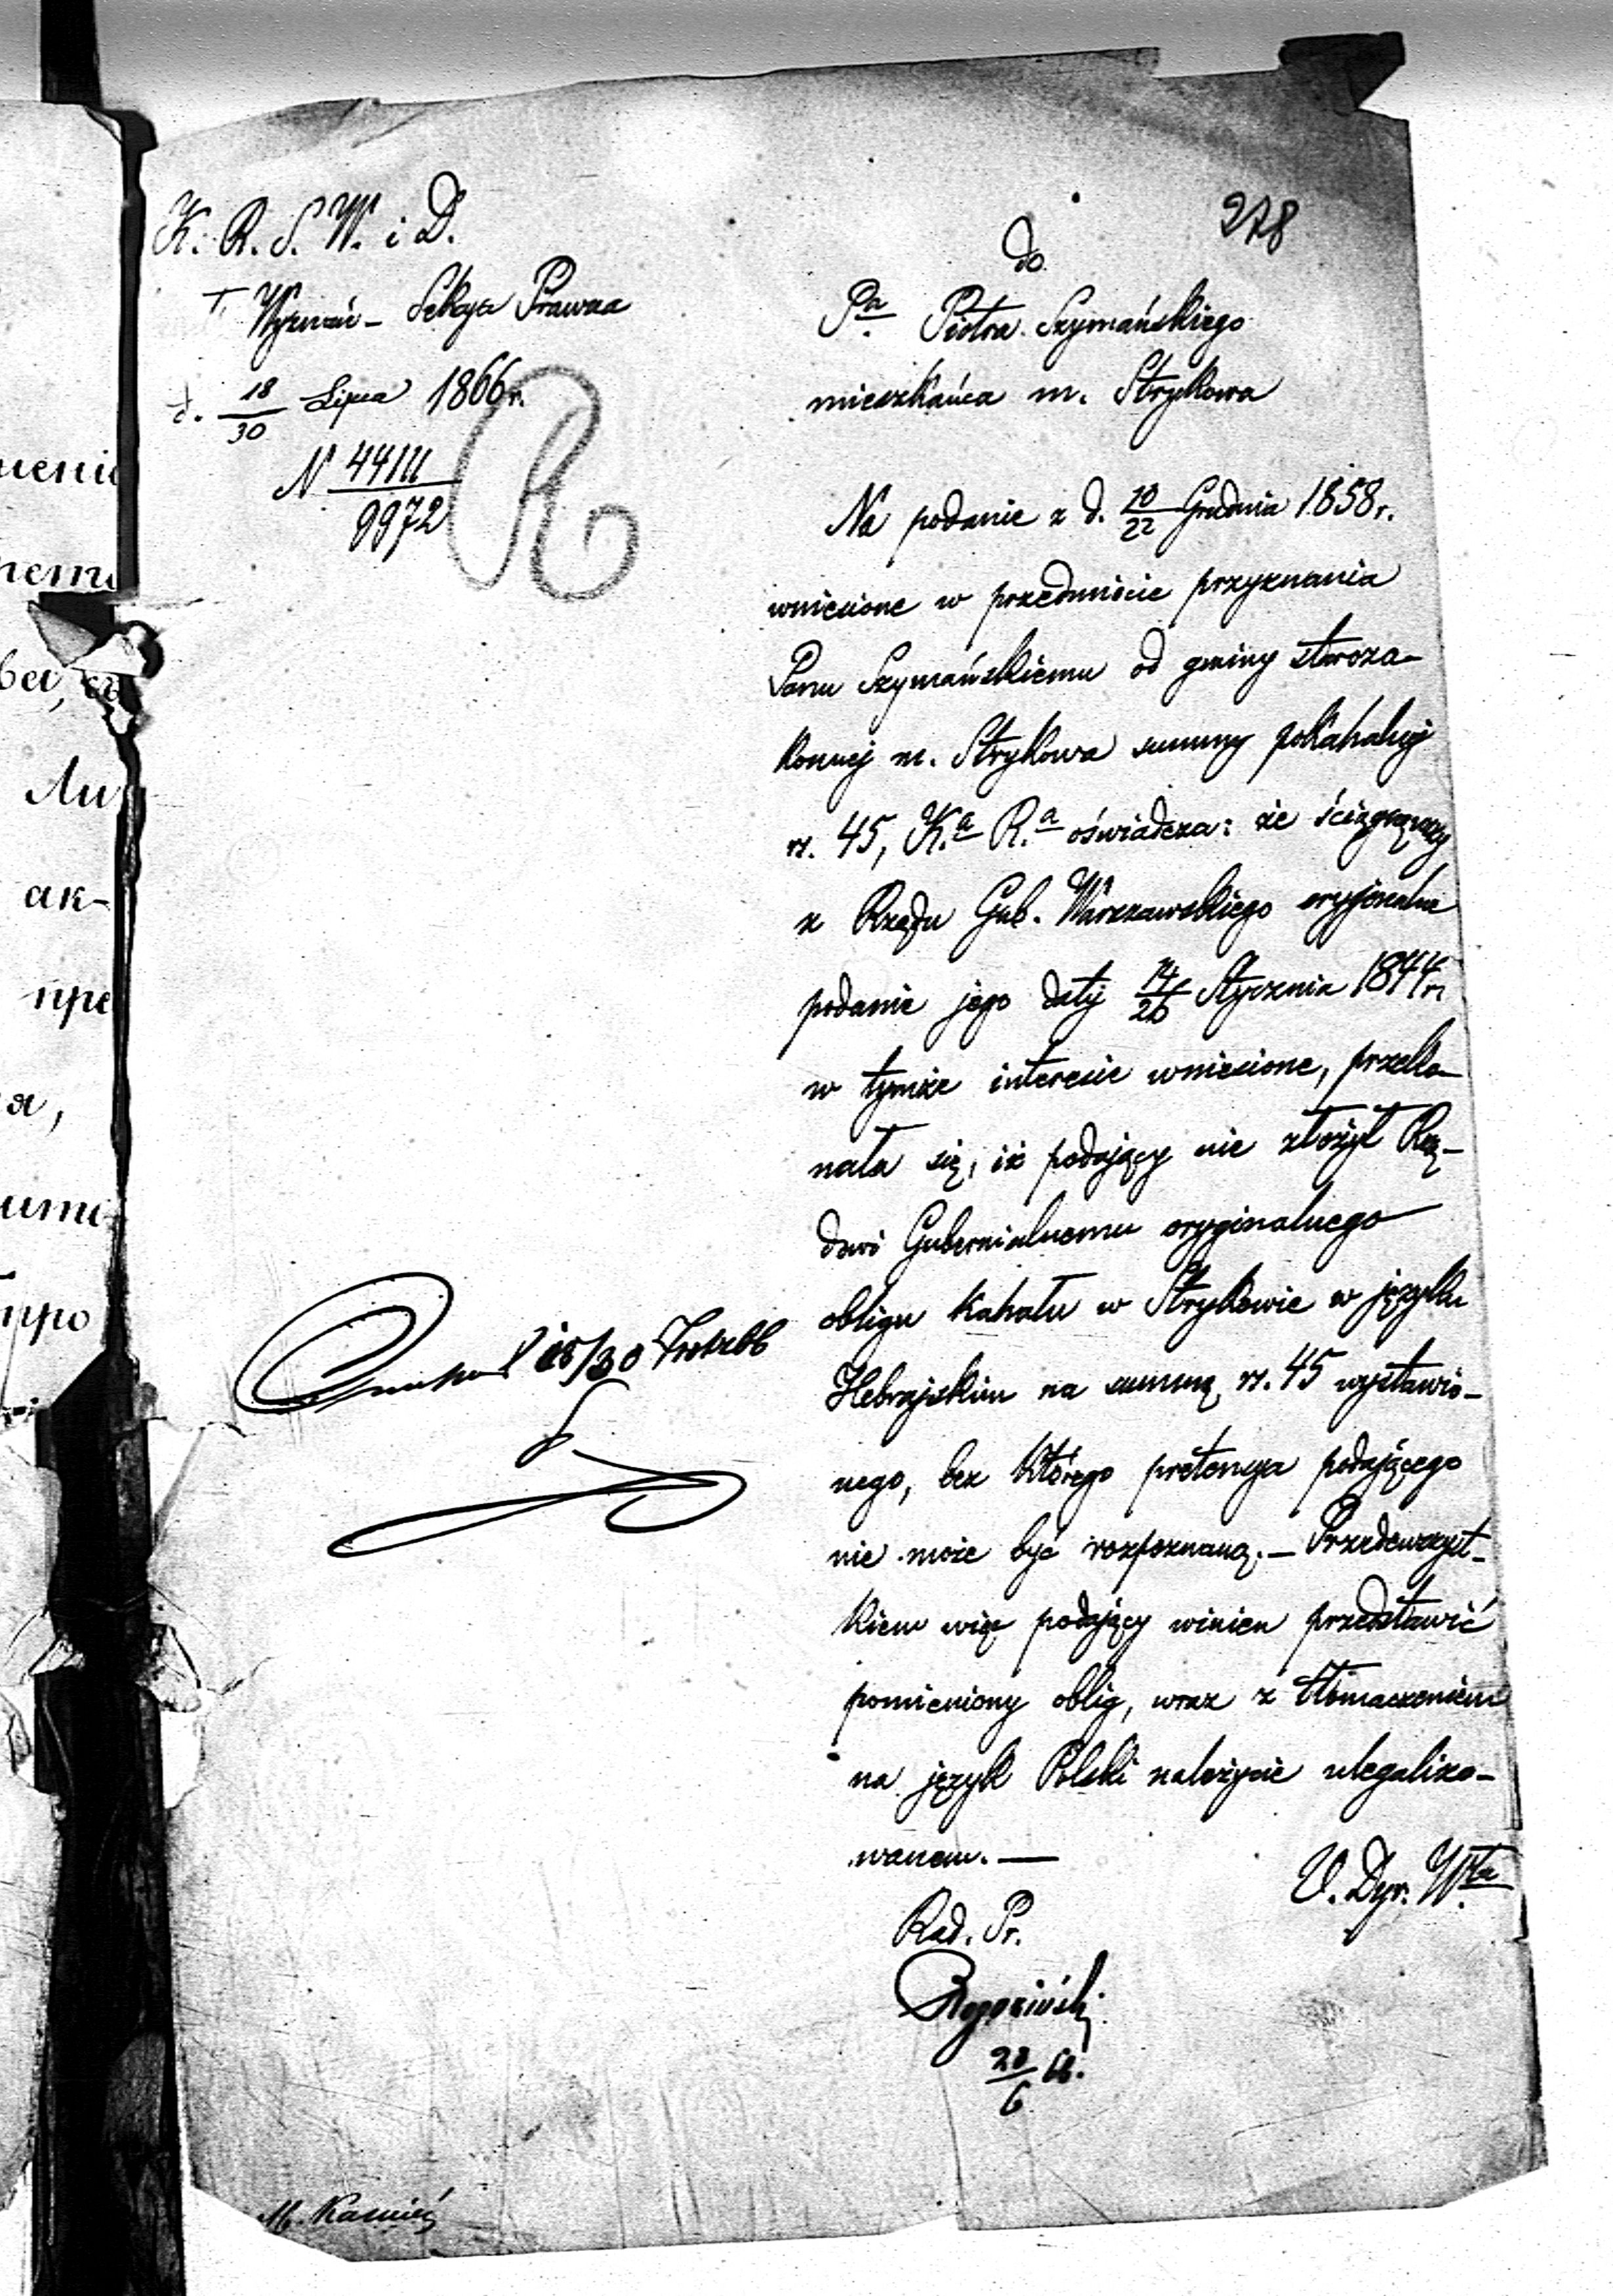 K. R. S. W. i D.
Wyznań - Sekcja Prawna
d. 18/30 Lipca 1866 r.
N 44111/9972
R
278
do
Pa Piotra Szymańskiego
mieszkańca m. Strykowa
Na podanie z d. 10/22 Grudnia 1858 r.
wniesione w przedmiocie przyznania
Panu Szymańskiemu od gminy staroza-
konnej m. Strykowa summy pokahalnej
rs. 45, K.a R.a oświadcza: że ściągnąwszy
z Rządu Gub. Warszawskiego oryginalne
podanie jego daty 14/26 Stycznia 1844 r.
w tymże interesie wniesione, przeko-
nała się, iż podający nie złożył Rzą-
dowi Gubernialnemu oryginalnego
obligu Kahału w Strykowie w języku
Hebrajskim na summę rs. 45 wystawio-
nego, bez którego pretensya podającego
nie może być rozpoznaną. — Przedewszyst-
kiem więc podający winien przedstawić
pomieniony oblig, wraz z tłómaczeniem
na język Polski należycie ulegalizo-
wanem. —
V. Dyr. Wła
Rad. Pr.
18/30
28/6 66.
M. Kamień
ak-
пре
я,
про